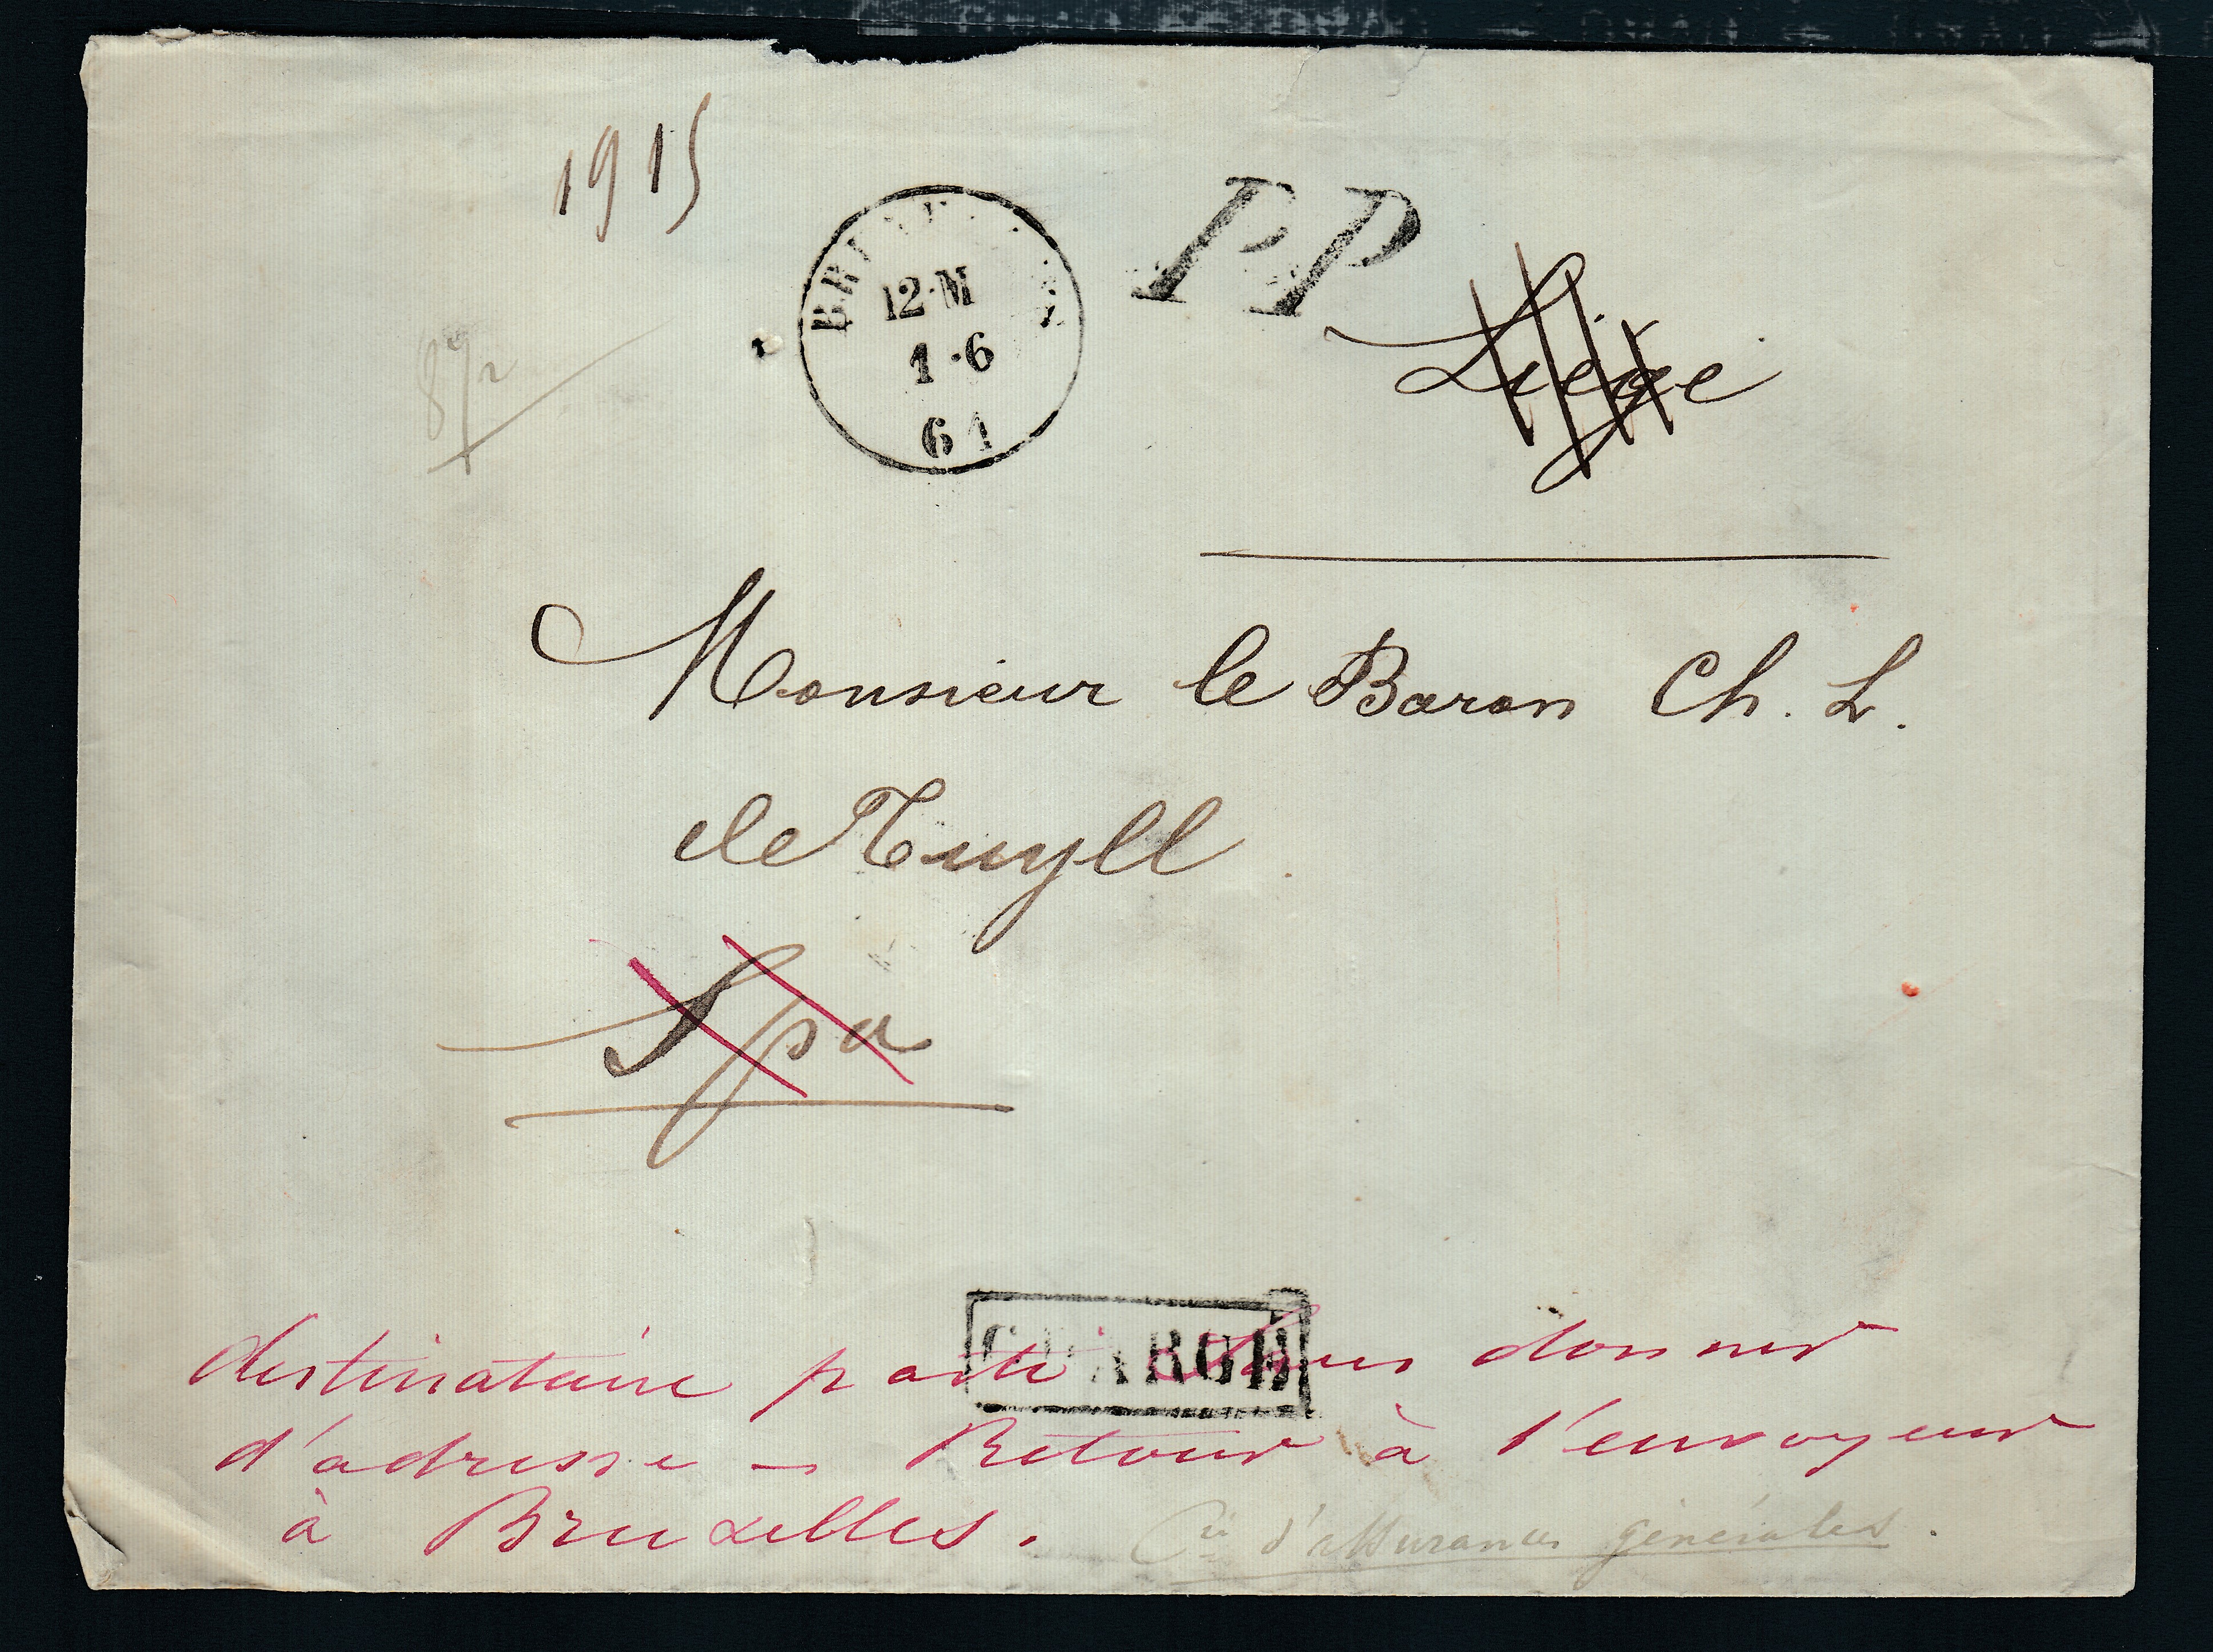 1915
BRUXELLES
12·M
1·6
61
PP
Liège
Monsieur le Baron Ch. L.
de Tuyll
Spa
CHARGÉ
destinataire parti sans donner
d'adresse — Retour à l'envoyeur
à Bruxelles.
Cie d'assurances générales.